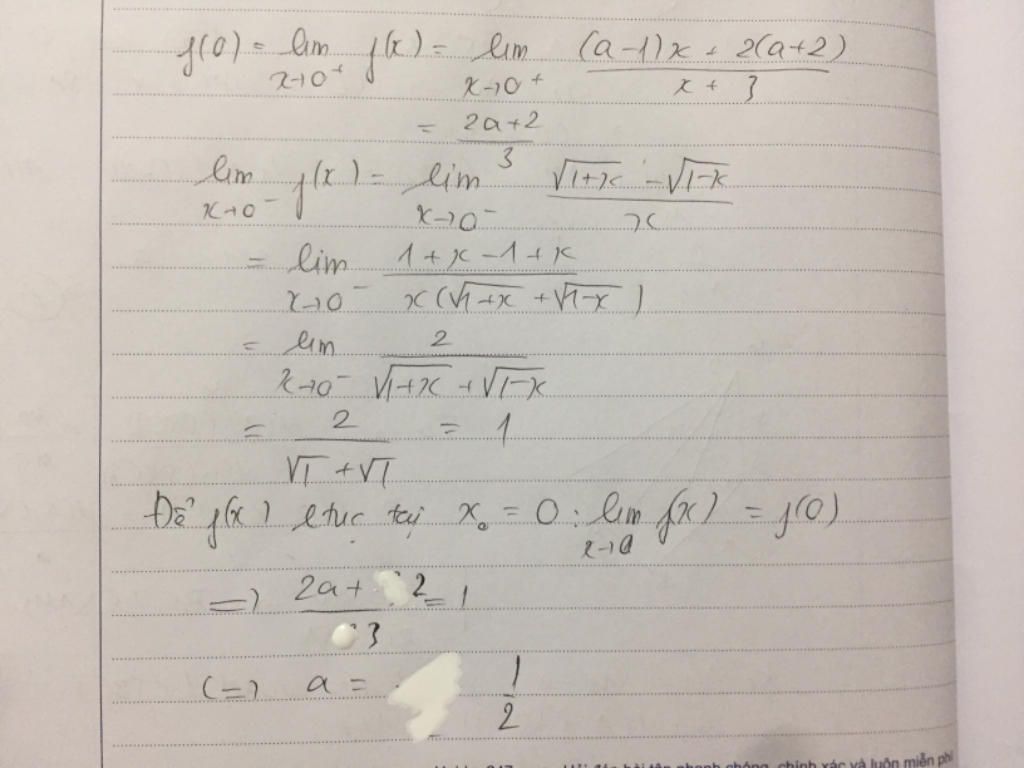 f(0) = lim x→0⁺ f(x) = lim x→0⁺ ((a-1)x + 2(a+2))/(x + 3)
= (2a+2)/3
lim x→0⁻ f(x) = lim x→0⁻ (√(1+x) - √(1-x))/x
= lim x→0⁻ (1+x-1+x)/(x(√(1+x) + √(1-x)))
= lim x→0⁻ 2/(√(1+x) + √(1-x))
= 2/(√1 + √1) = 1
Để f(x) ltục tại x₀ = 0 : lim x→0 f(x) = f(0)
=> (2a+2)/3 = 1
<=> a = 1/2
Hỏi đáp bài tập nhanh chóng, chính xác và luôn miễn phí